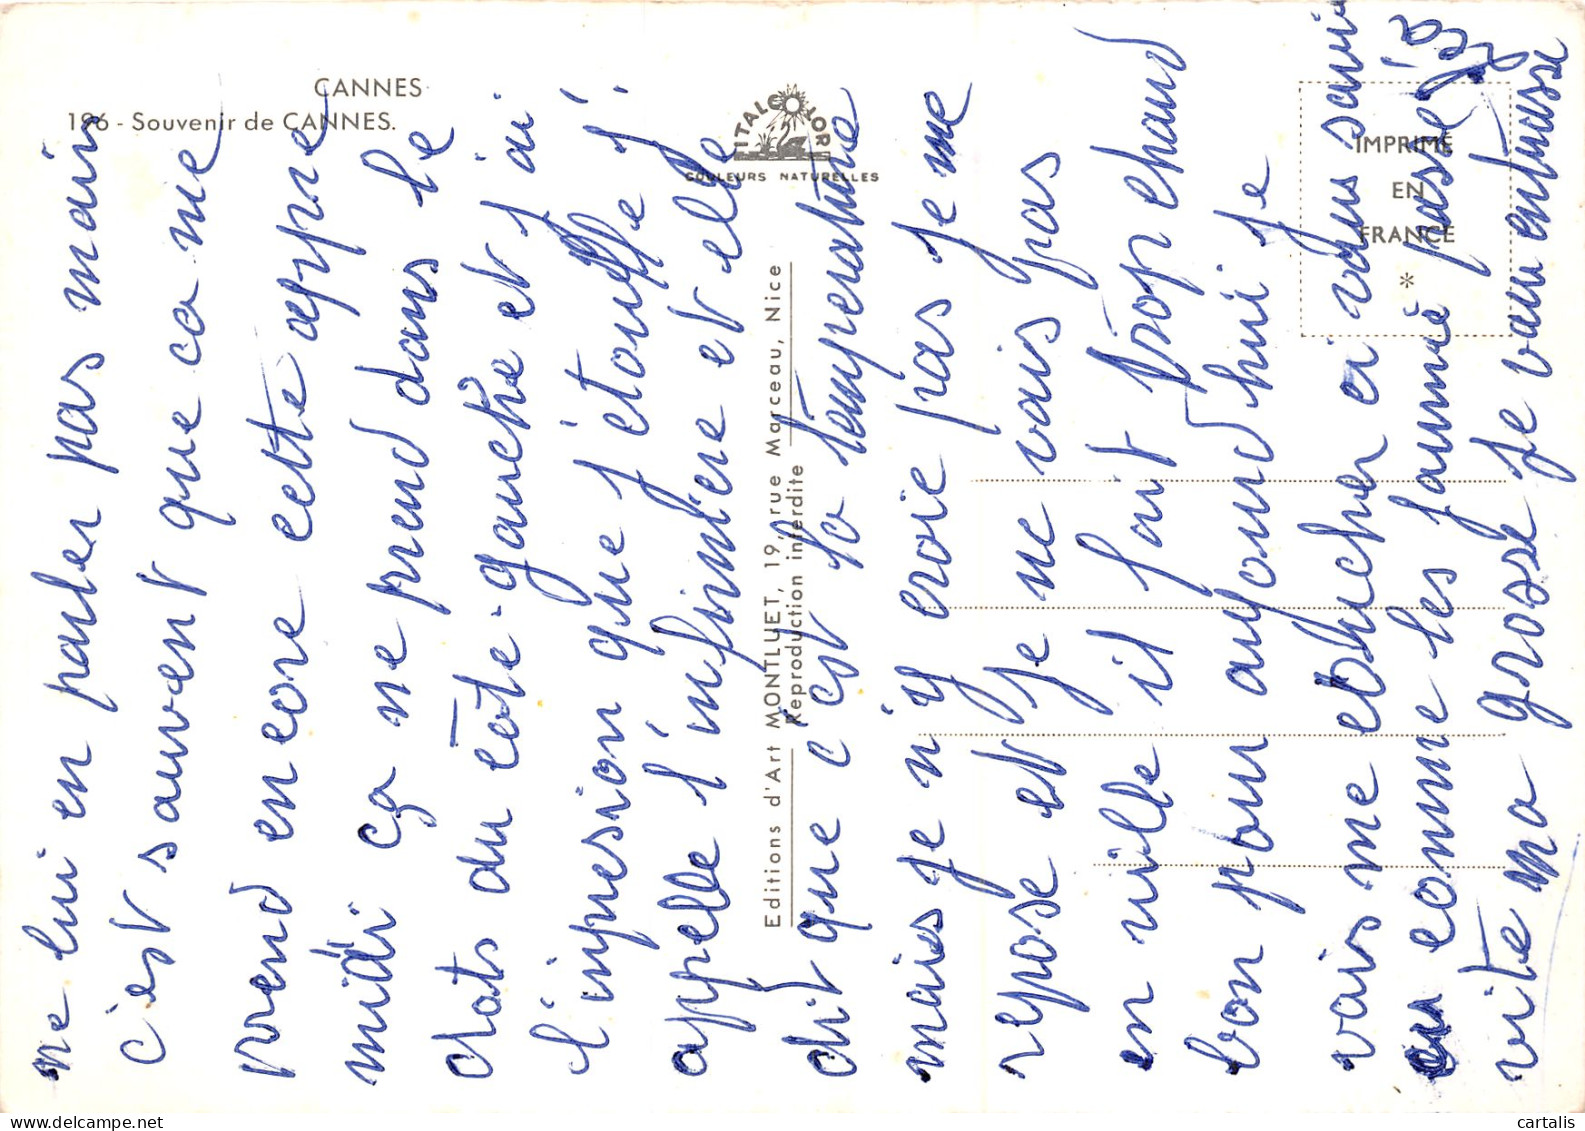 CANNES
196 - Souvenir de CANNES.
ITALCOLOR
COULEURS NATURELLES
Editions d'Art MONTLUET, 19, rue Marceau, Nice
Reproduction interdite
IMPRIMÉ
EN
FRANCE
*
ne lui en parler pas mais
c'est sauvent que ca me
prend encore cette appre
midi ça ne prend dans le
du côte gauche et j'ai
l'impression que j'étouffe j'
appelle l'infirmière et elle
dit que c'est la température
mais je n'y croie pas je me
repose et je ne vais pas
en ville il fait trop chaud
bon pour aujourd'hui je
vais me coucher
comme les passé
vite ma grosse je
cartalis